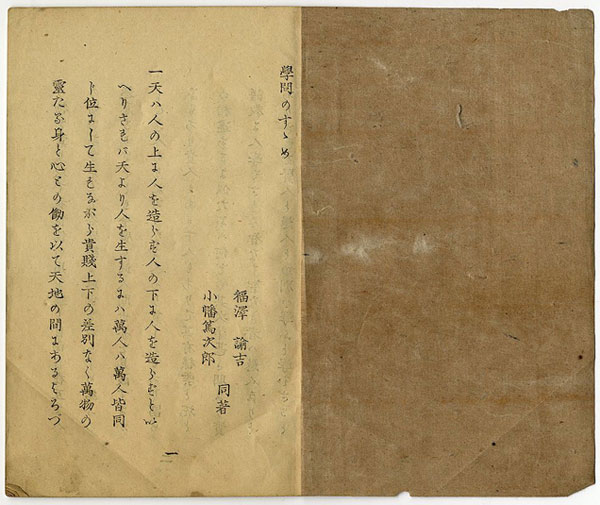 學問のすゝめ
福澤諭吉
小幡篤次郎
同著
一天ハ人の上に人を造らず人の下に人を造らずと以
へりされバ天より人を生ずるにハ萬人ハ萬人皆同
じ位にして生れながら貴賤上下の差別なく萬物の
靈たる身と心との働を以て天地の間にあるよろづ
一